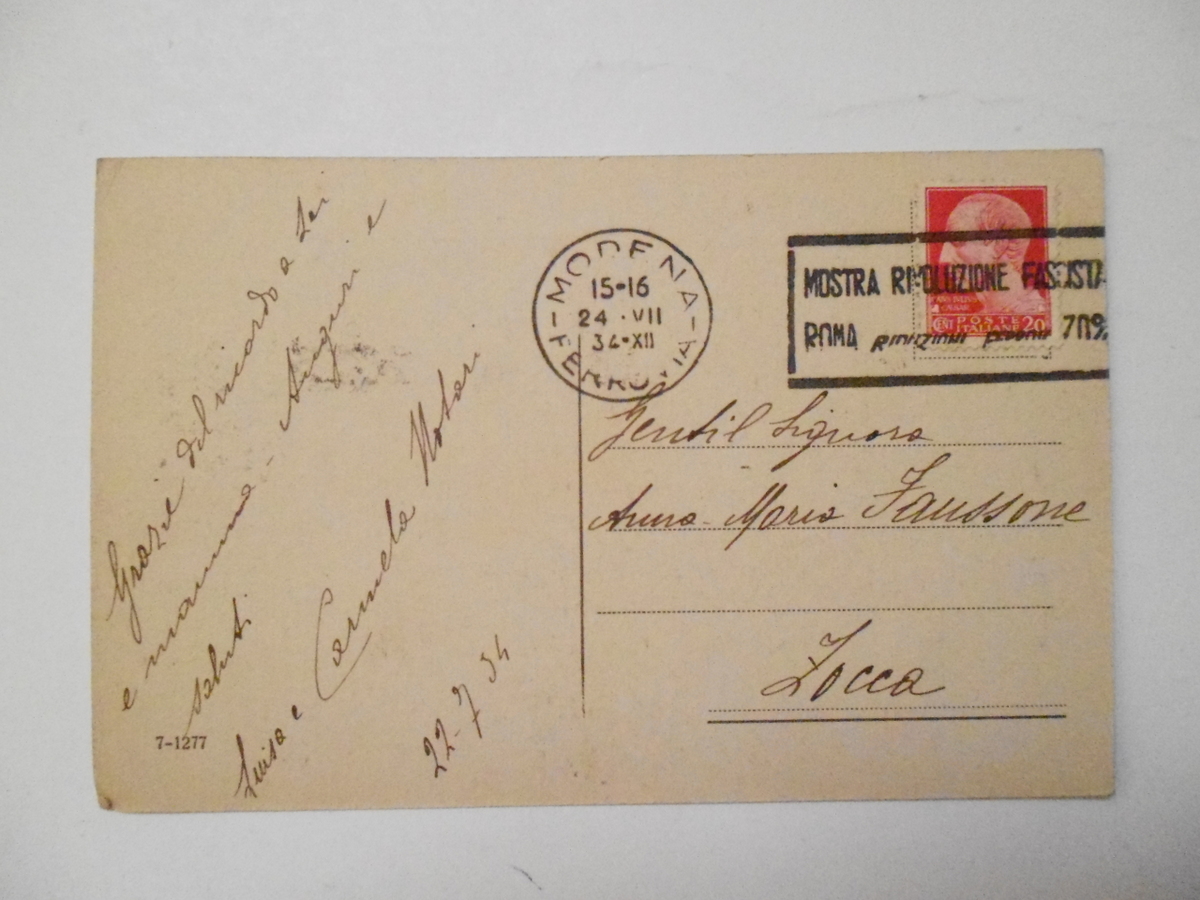 Grazie del ricordo a Lei
e mamma - Auguri e
saluti
Luisa e Carmela Notari
22-7 34
7-1277
MODENA
15-16
24 · VII
34 · XII
FERROVIA
MOSTRA RIVOLUZIONE FASCISTA
ROMA RIDUZIONI FERROV 70%
POSTE
CENT ITALIANE 20
Gentil Signora
Anna-Maria Faussone
Zocca